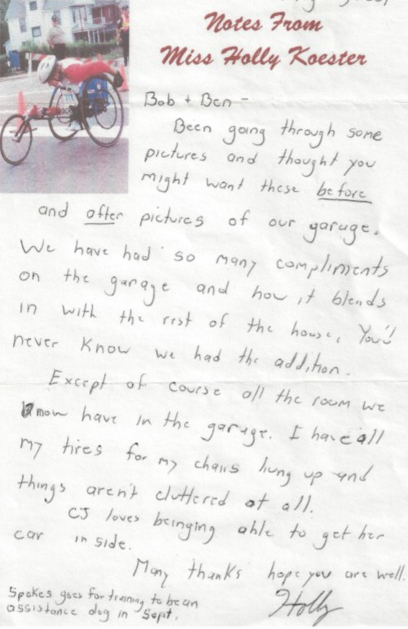 Notes From
Miss Holly Koester
Bob + Ben -
Been going through some
pictures and thought you
might want these before
and after pictures of our garage.
We have had so many compliments
on the garage and how it blends
in with the rest of the house. You'd
never know we had the addition.
Except of course all the room we
now have in the garage. I have all
my tires for my chairs hung up and
things aren't cluttered at all.
CJ loves beinging able to get her
car in side.
Many thanks hope you are well.
Holly
Spokes goes for training to be an
assistance dog in Sept.